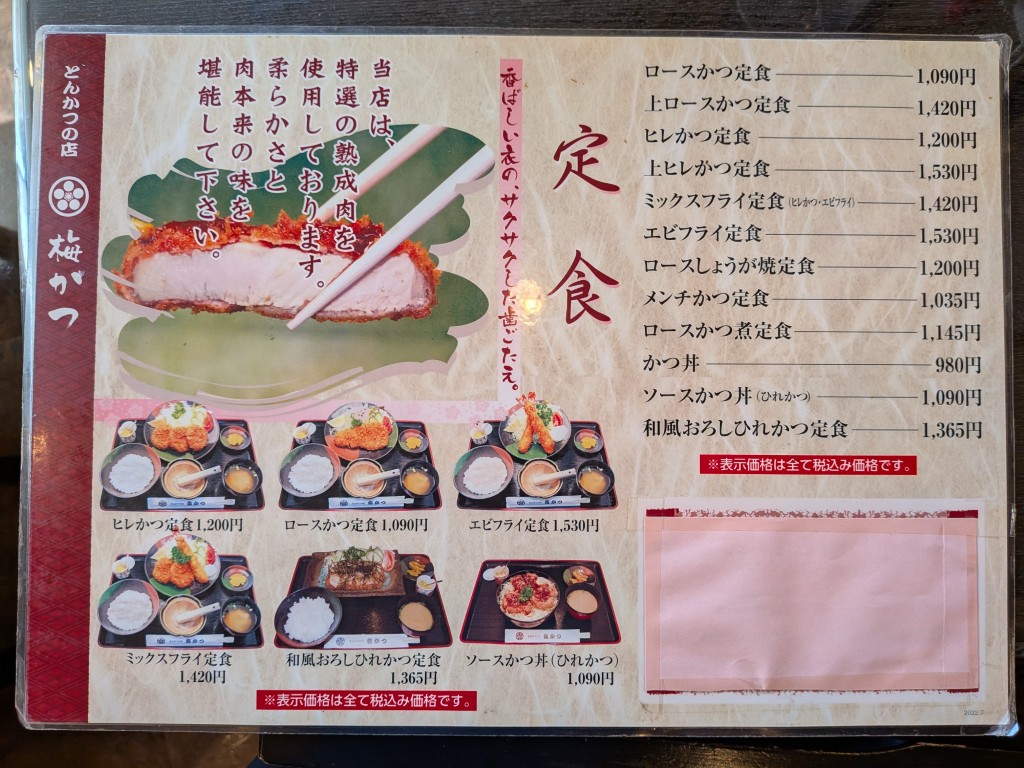 とんかつの店
梅がつ
当店は、
特選の熟成肉を
使用しております。
柔らかさと
肉本来の味を
堪能して下さい。
香ばしい衣の、サクサクした歯ごたえ。
定食
ロースかつ定食 1,090円
上ロースかつ定食 1,420円
ヒレかつ定食 1,200円
上ヒレかつ定食 1,530円
ミックスフライ定食(ヒレかつ・エビフライ) 1,420円
エビフライ定食 1,530円
ロースしょうが焼定食 1,200円
メンチかつ定食 1,035円
ロースかつ煮定食 1,145円
かつ丼 980円
ソースかつ丼(ひれかつ) 1,090円
和風おろしひれかつ定食 1,365円
※表示価格は全て税込み価格です。
ヒレかつ定食1,200円
ロースかつ定食1,090円
エビフライ定食1,530円
ミックスフライ定食
1,420円
和風おろしひれかつ定食
1,365円
ソースかつ丼(ひれかつ)
1,090円
※表示価格は全て税込み価格です。